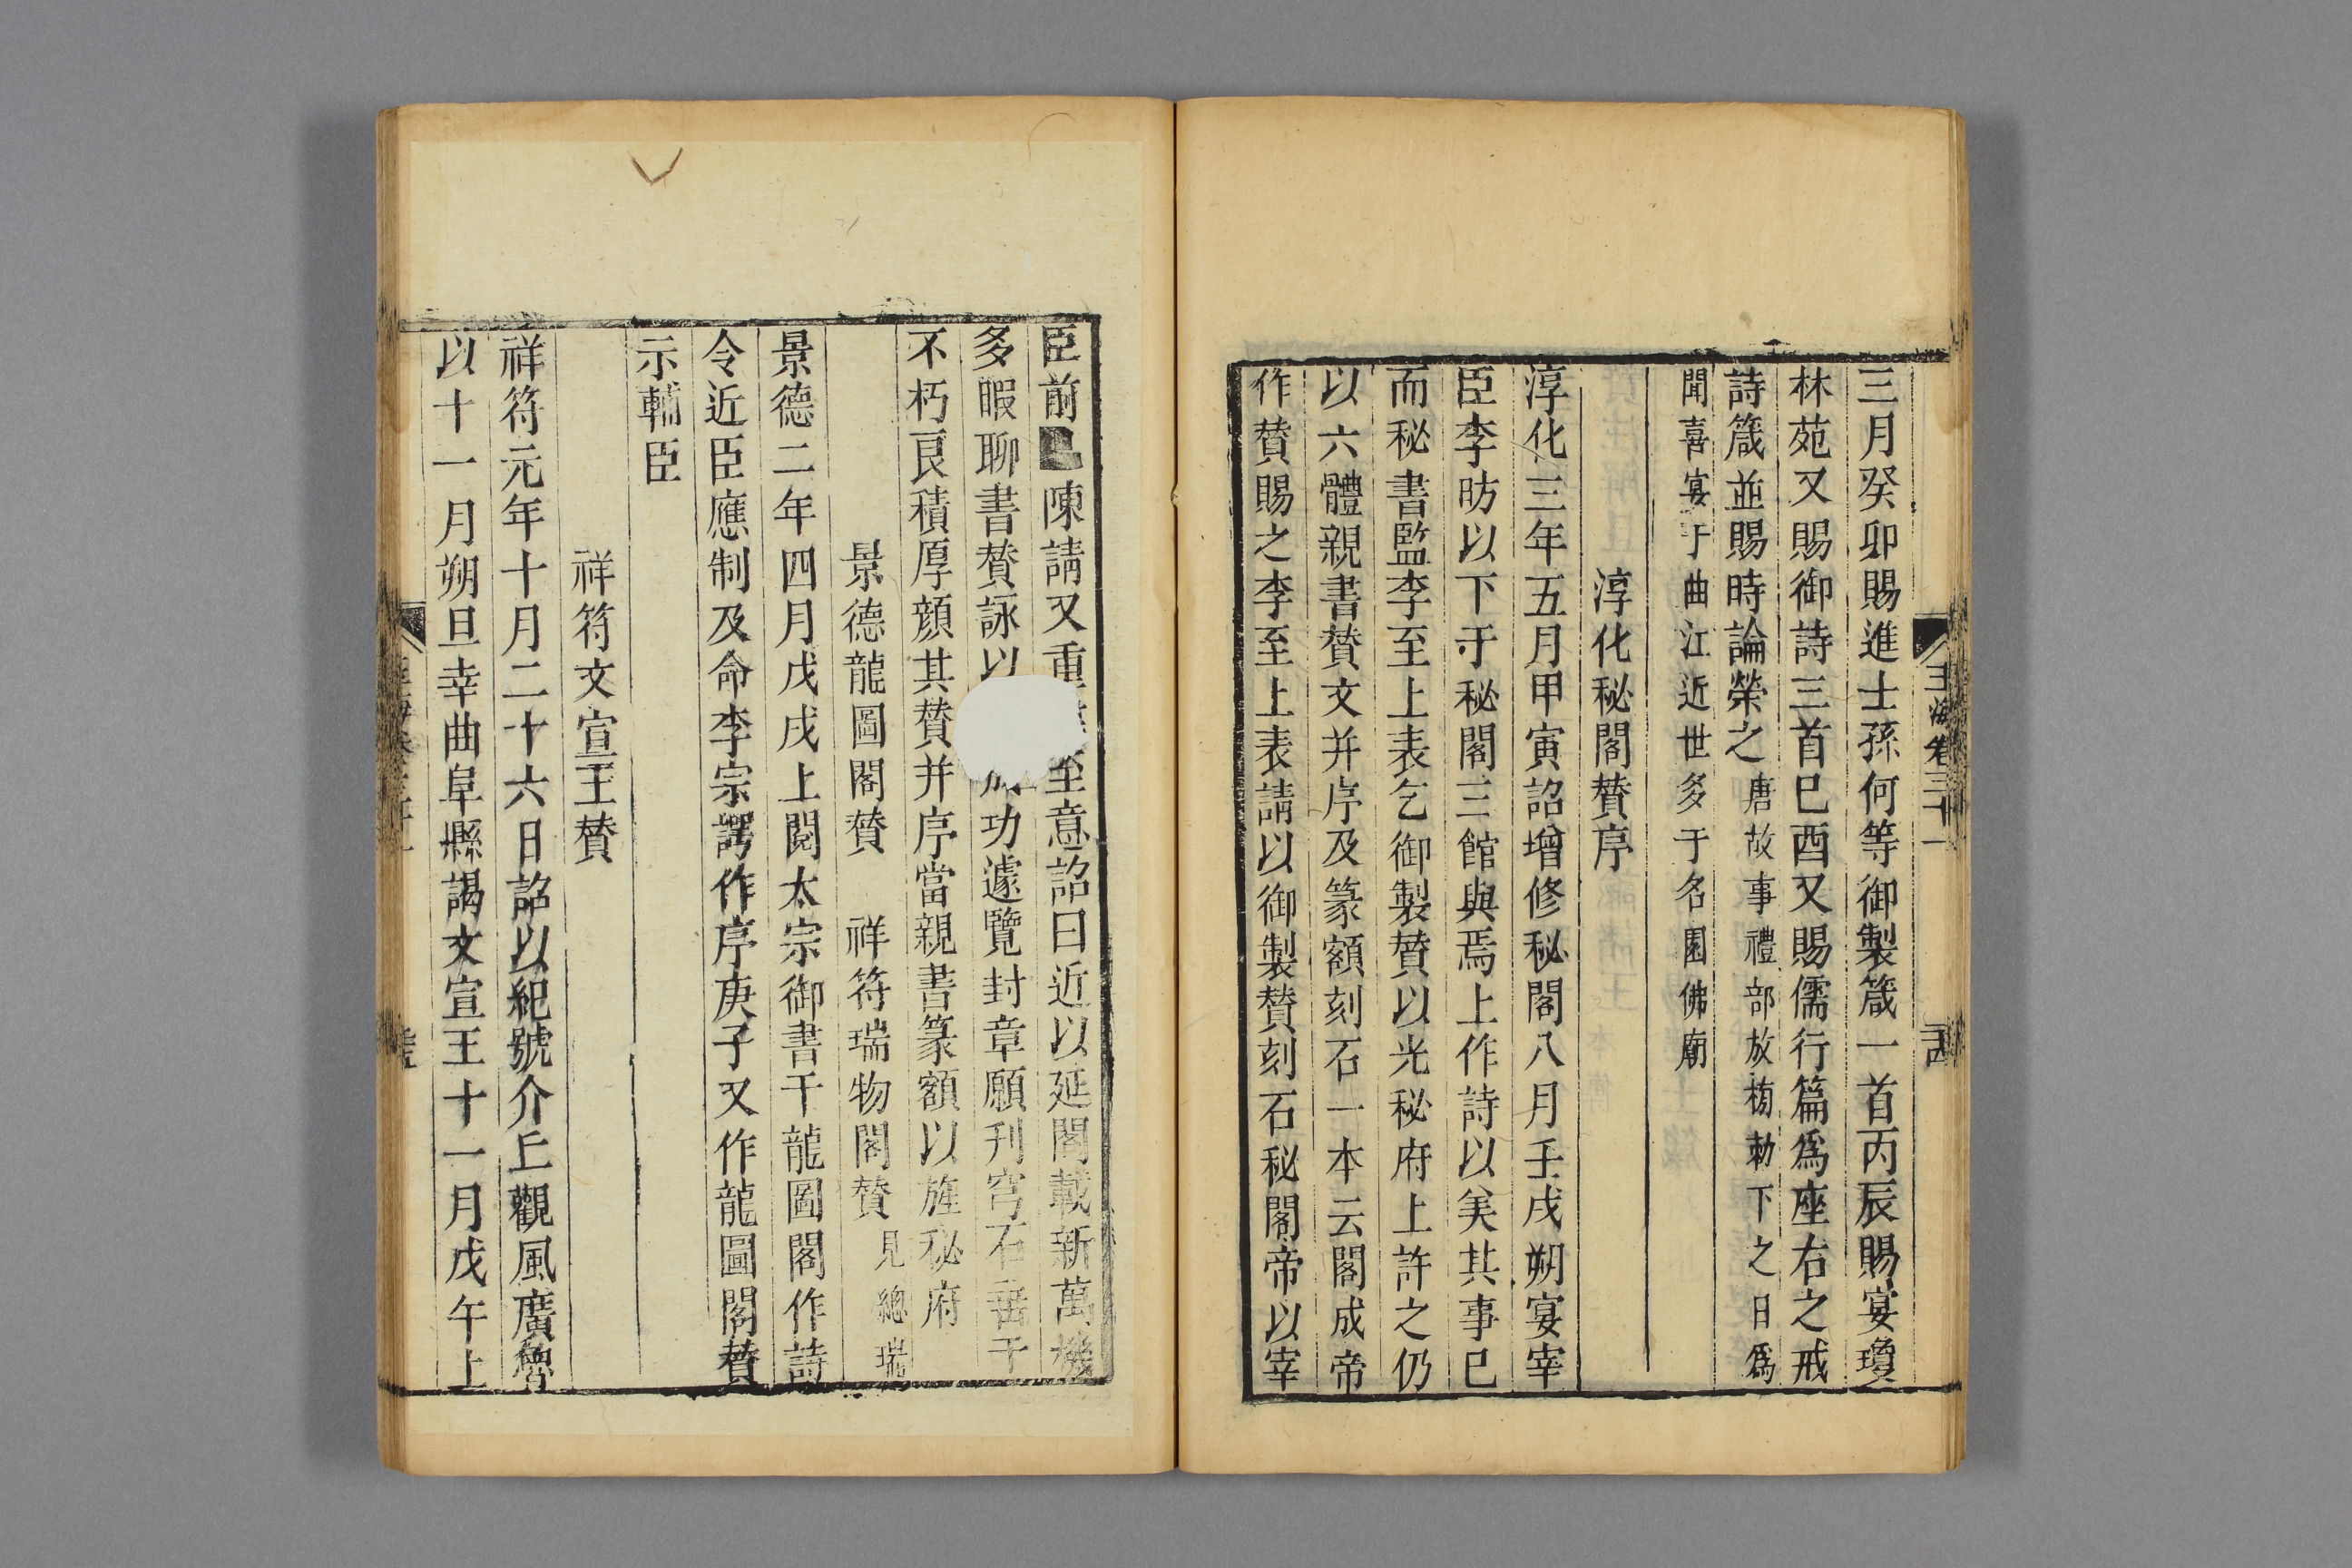 玉海卷三十一
三月癸卯賜進士孫何等御製箴一首丙辰賜宴瓊
林苑又賜御詩三首巳酉又賜儒行篇爲座右之戒
詩箴並賜時論榮之唐故事禮部放榜勅下之日爲
聞喜宴于曲江近世多于名園佛廟
淳化秘閣贊序
淳化三年五月甲寅詔增修秘閣八月壬戌朔宴宰
臣李昉以下于秘閣三館與焉上作詩以美其事巳
而秘書監李至上表乞御製贊以光秘府上許之仍
以六體親書贊文并序及篆額刻石一本云閣成帝
作贊賜之李至上表請以御製贊刻石秘閣帝以宰
臣前陳請又重至意詔曰近以延閣載新萬機
多暇聊書贊詠以功遽覽封章願刋穹石垂于
不朽良積厚顏其贊并序當親書篆額以旌秘府
景德龍圖閣贊 祥符瑞物閣贊見總瑞
景德二年四月戊戌上閱太宗御書于龍圖閣作詩
令近臣應制及命李宗諤作序庚子又作龍圖閣贊
示輔臣
祥符文宣王贊
祥符元年十月二十六日詔以紀號介丘觀風廣魯
以十一月朔旦幸曲阜縣謁文宣王十一月戊午上